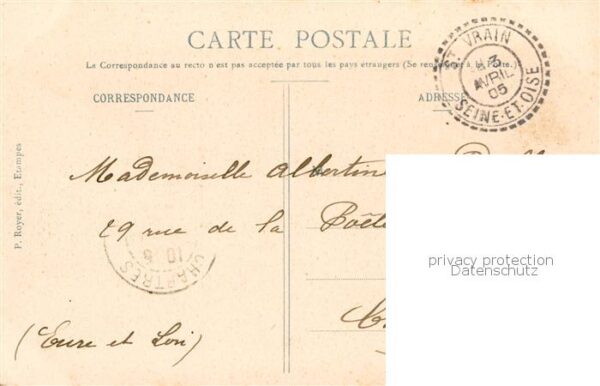 CARTE POSTALE
La Correspondance au recto n'est pas acceptée par tous les pays étrangers (Se renseigner à la Poste).
CORRESPONDANCE
ADRESSE
ST VRAIN
3
AVRIL
05
SEINE-ET-OISE
Mademoiselle Albertin
29 rue de la
CHARTRES
(Eure et Loir)
P. Royer, édit., Etampes
privacy protection
Datenschutz